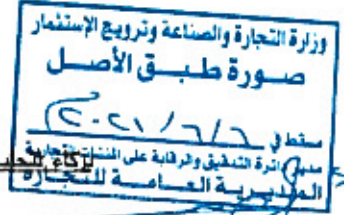 وزارة التجارة والصناعة وترويج الإستثمار
صورة طبق الأصل
مسقط في ٦/٦/٢٠٢١
دائرة التدقيق والرقابة على المنشآت التجارية
المديرية العامة للتجارة